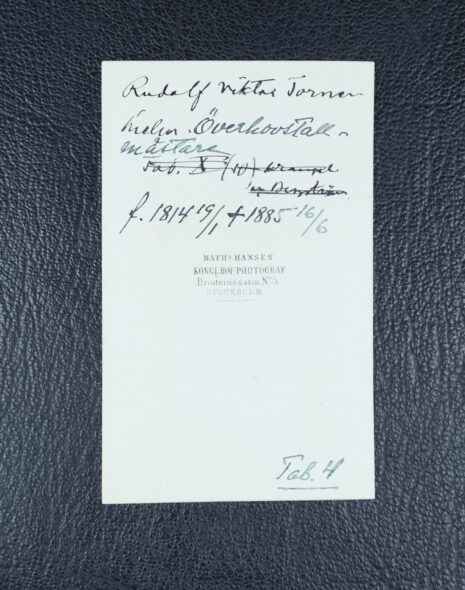 Rudolf Viktor Tornér-
hielm. Överhovstall-
mästare
Tab. X
f. 1814 19/1 † 1885 16/6
MATHS HANSEN
KONGL. HOF-PHOTOGRAF
Drottninggatan No 5.
STOCKHOLM
Tab. 4